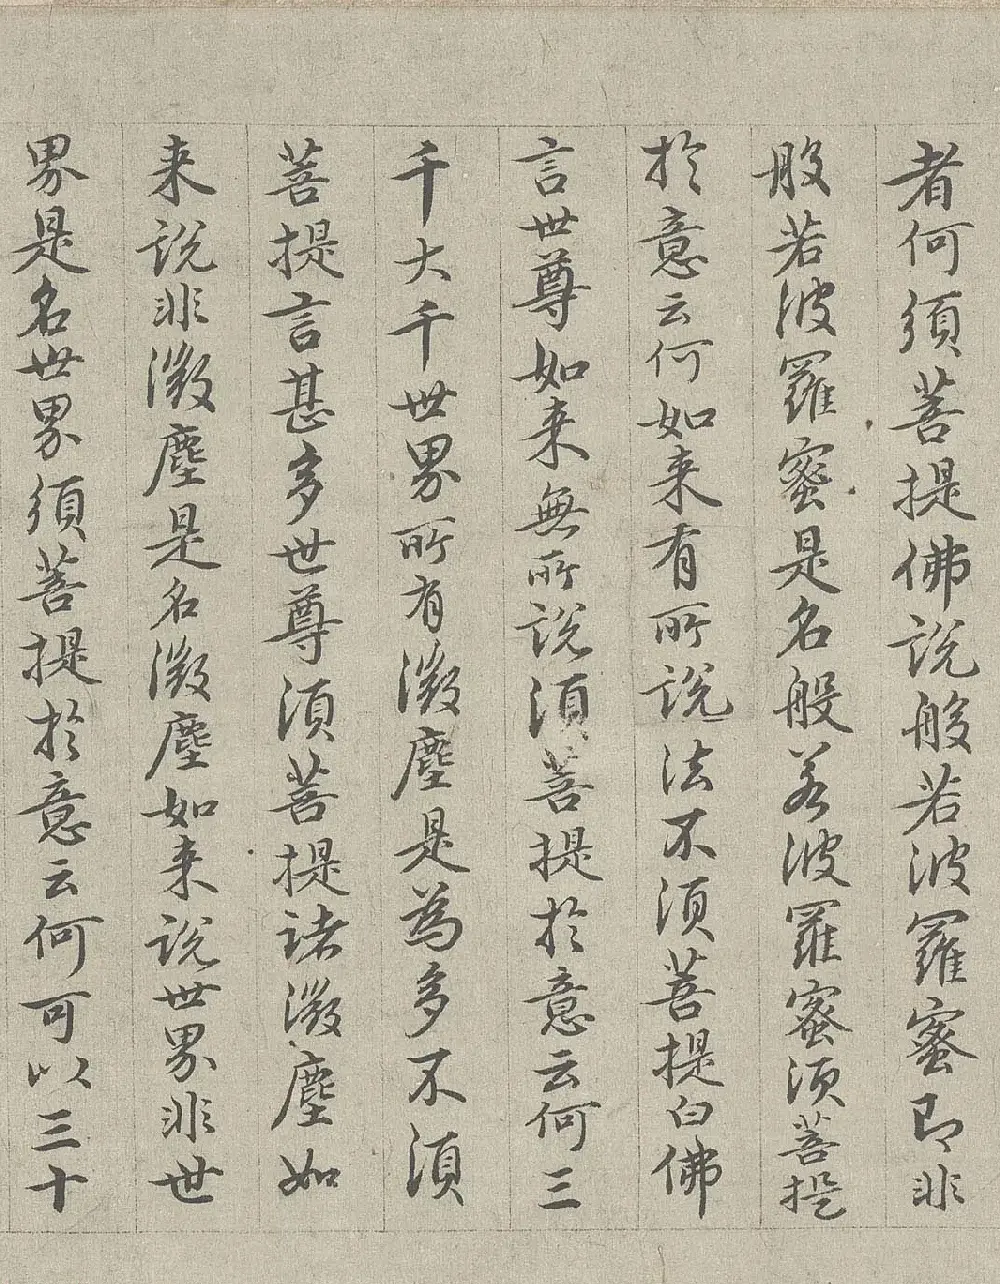 者何須菩提佛說般若波羅蜜即非
般若波羅蜜是名般若波羅蜜須菩提
於意云何如来有所說法不須菩提白佛
言世尊如来無所說須菩提於意云何三
千大千世界所有微塵是為多不須
菩提言甚多世尊須菩提諸微塵如
来說非微塵是名微塵如来說世界非世
界是名世界須菩提於意云何可以三十